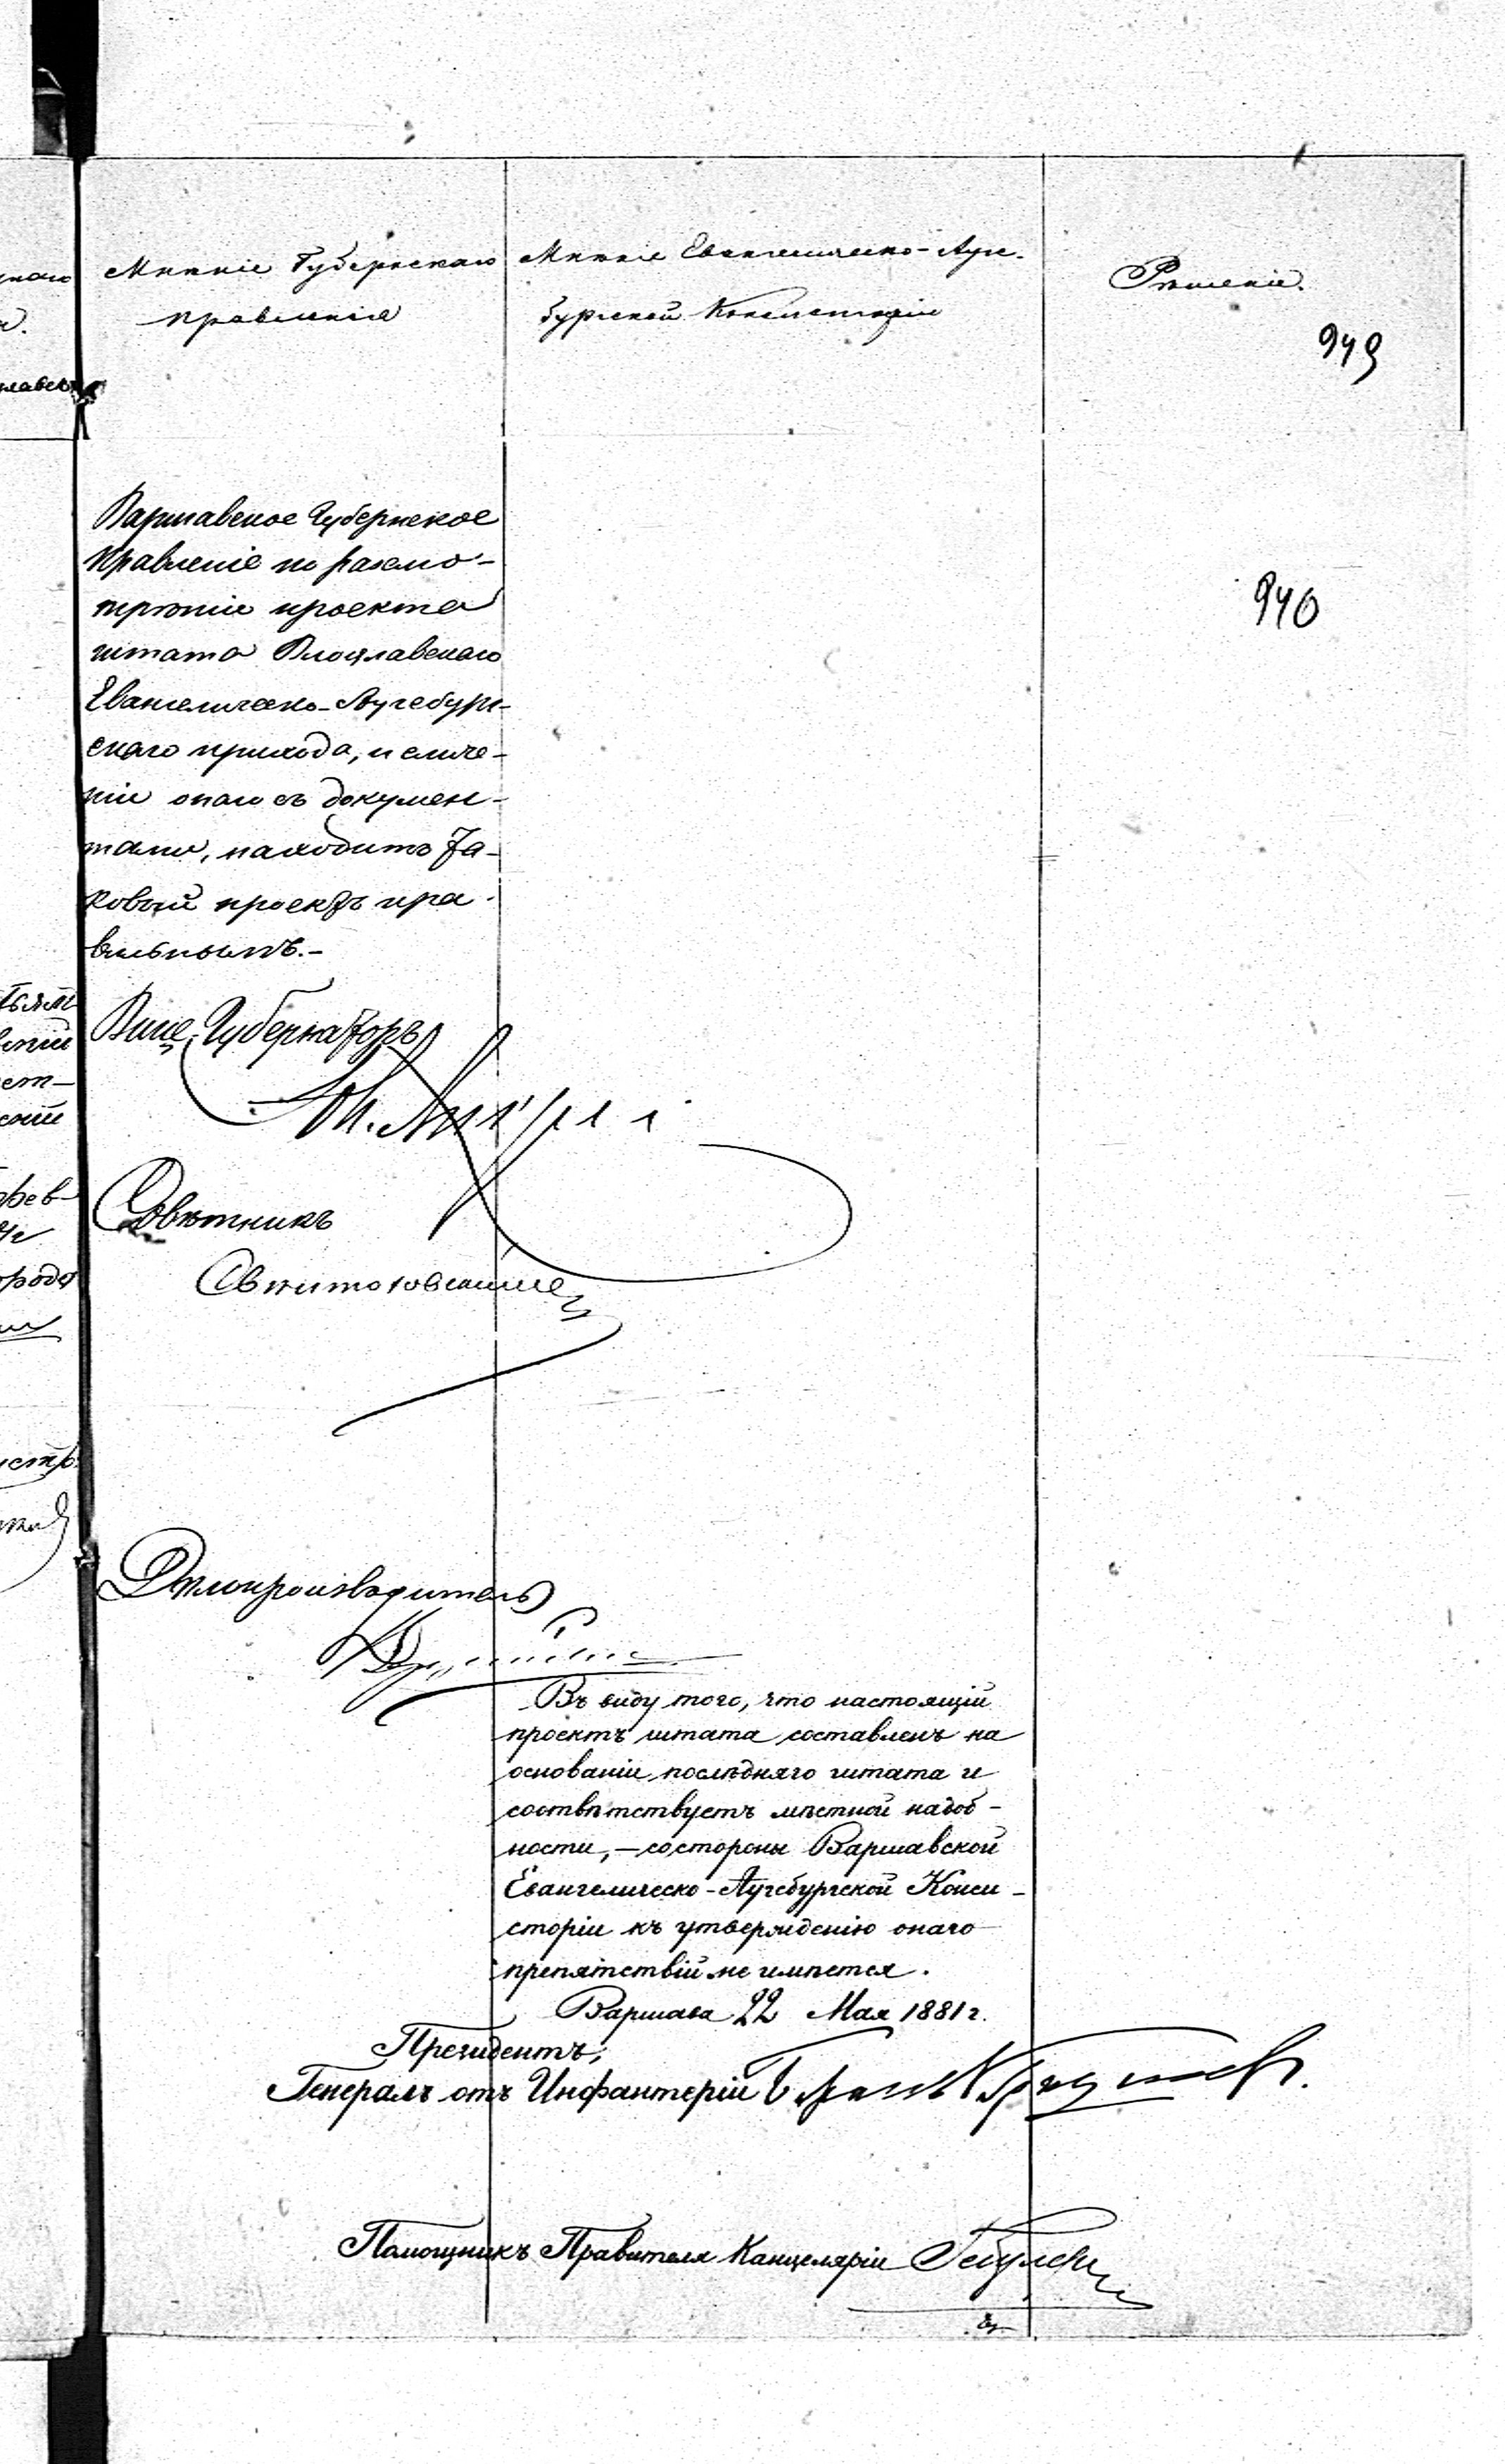 Мнѣніе Губернскаго
правленія
Мнѣніе Евангелическо-Аугс-
бургской Консисторіи
Рѣшеніе.
949
940
Варшавское Губернское
Правленіе по разсмо-
трѣніи проекта
штата Влоцлавскаго
Евангелическо-Аугсбург-
скаго прихода, и сличе-
ніи онаго съ докумен-
тами, находитъ та-
ковый проектъ пра-
вильнымъ.-
Вице-Губернаторъ
Совѣтникъ
Дѣлопроизводитель
Въ виду того, что настоящій
проектъ штата составленъ на
основаніи послѣдняго штата и
соотвѣтствуетъ мѣстной надоб-
ности, — со стороны Варшавской
Евангелическо-Аугсбургской Конси-
сторіи къ утвержденію онаго
препятствій не имѣется.
Варшава 22 Мая 1881 г.
Президентъ,
Генералъ отъ Инфантеріи
Помощникъ Правителя Канцеляріи